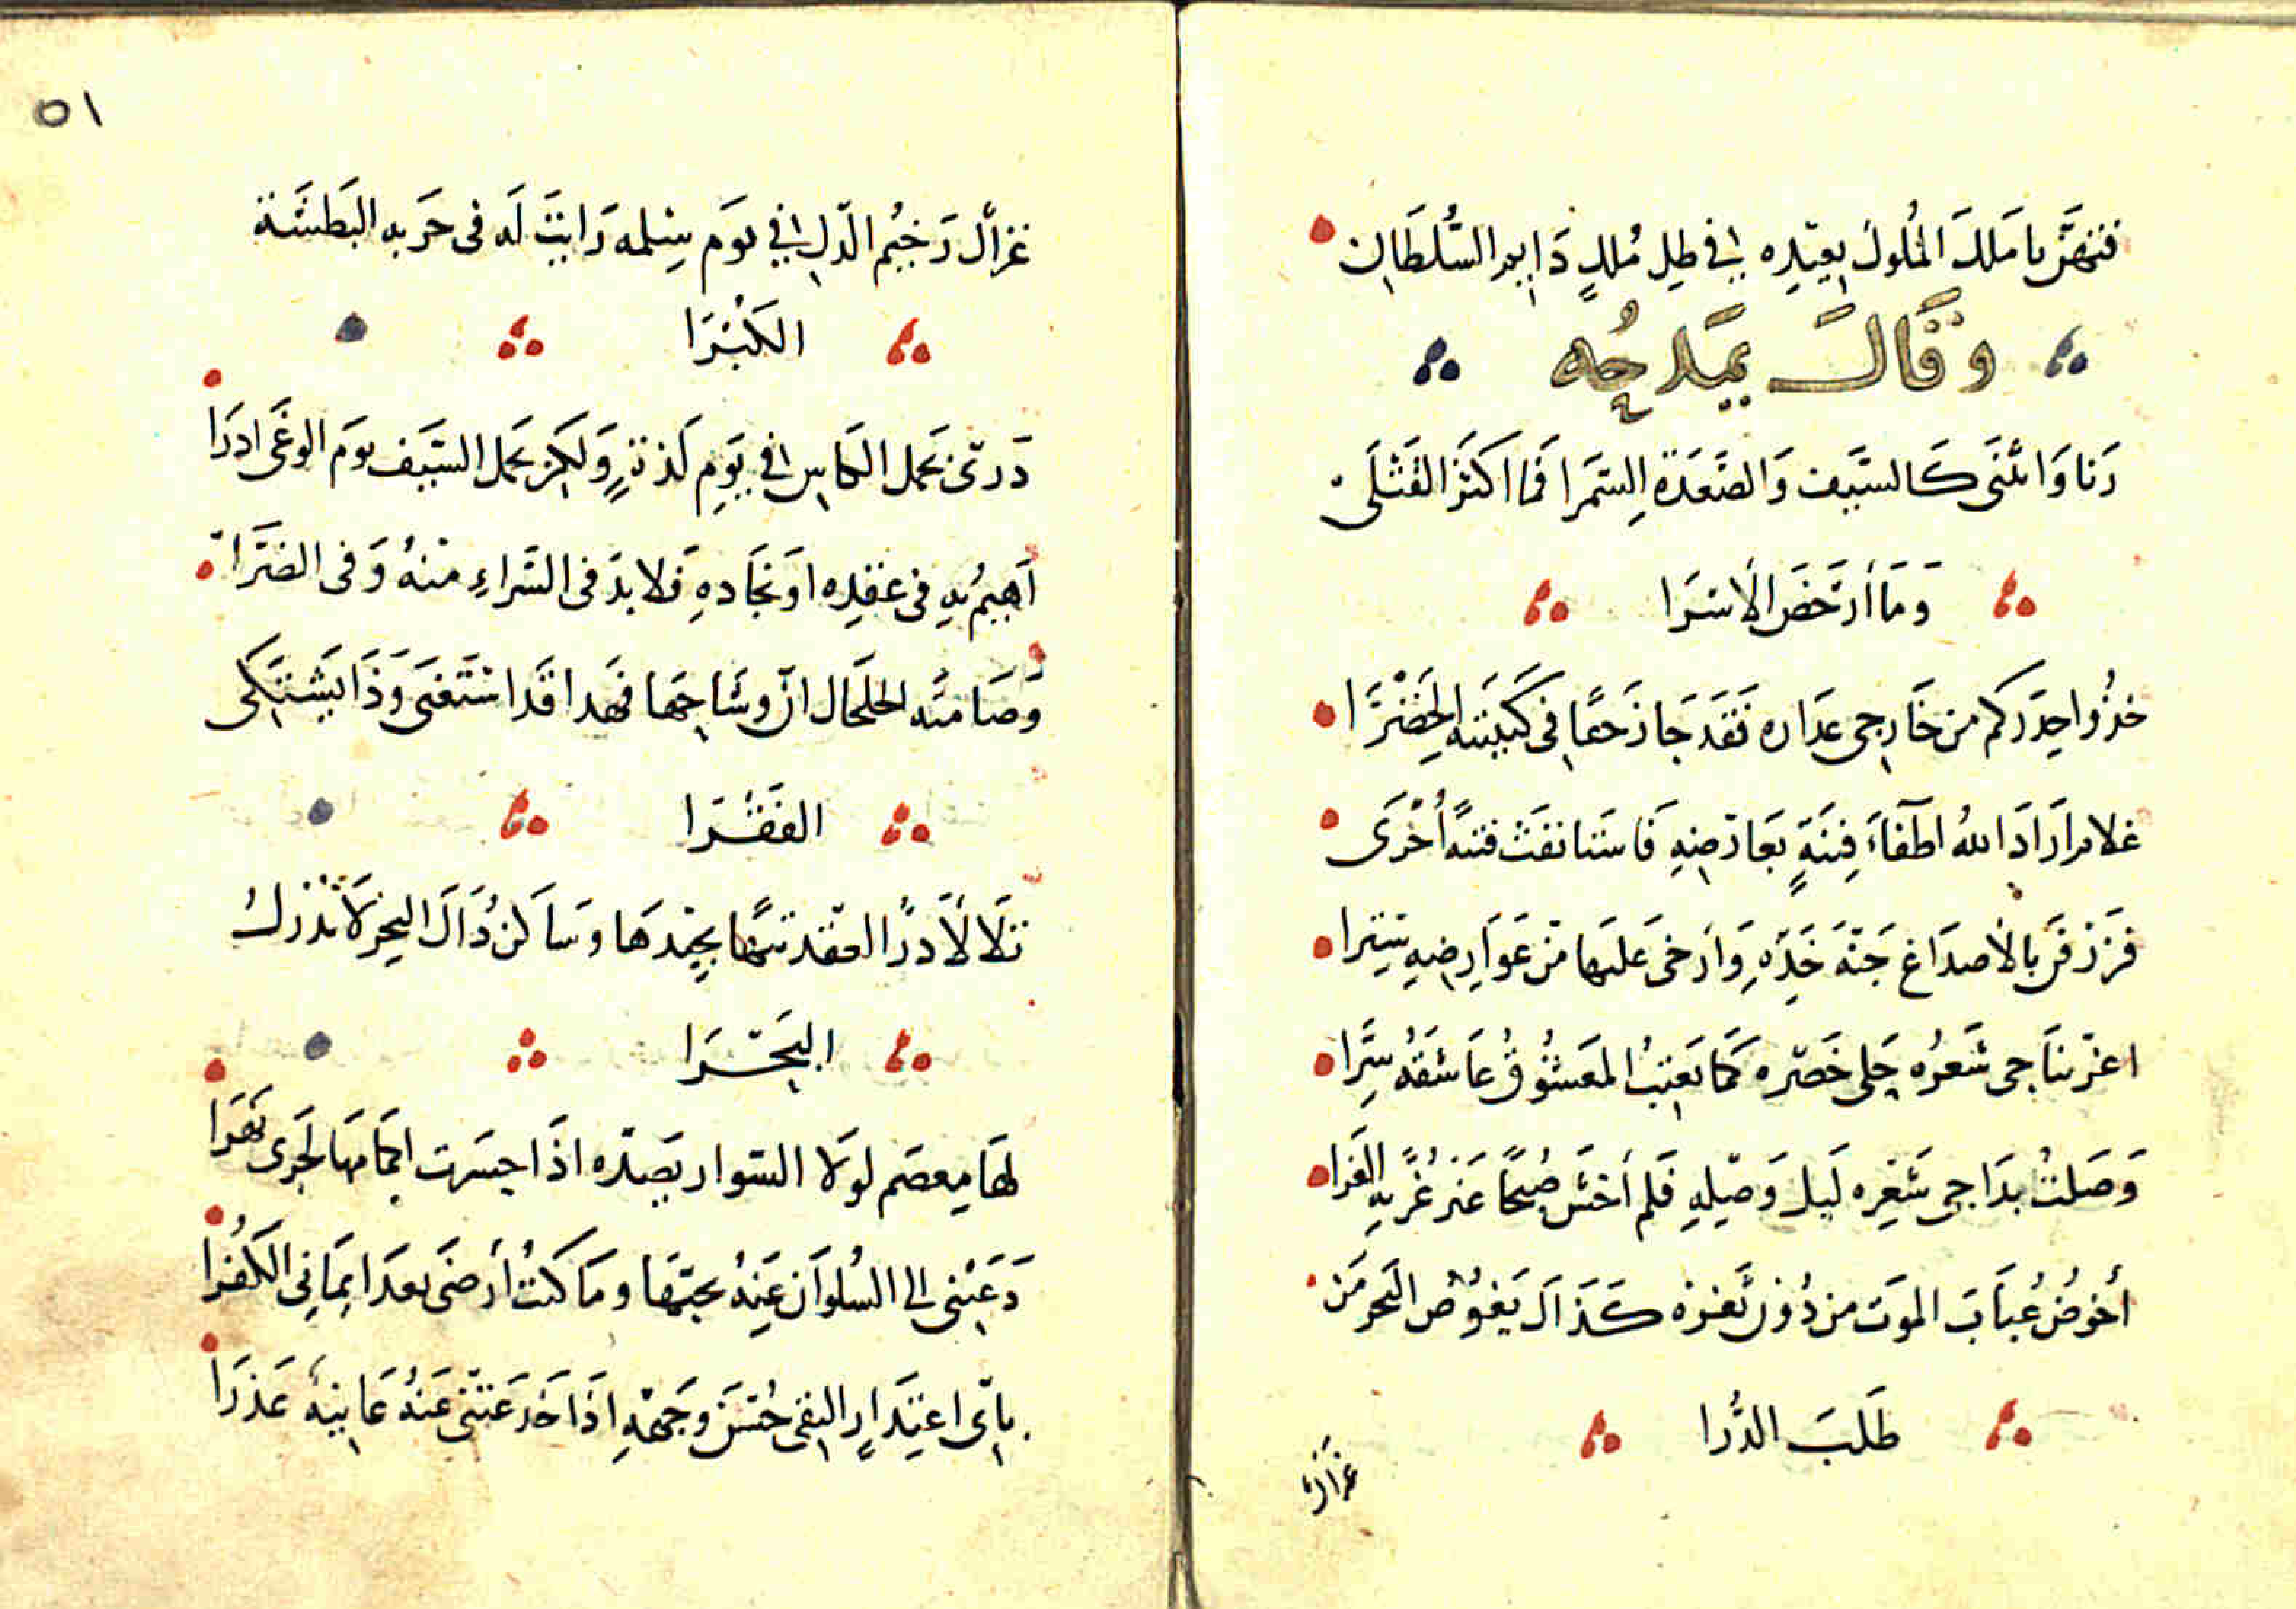 فتهنّ يا ملك الملوك بعيده في ظل ملك دائم السلطان
وقال يمدحه
دنا وانثنى كالسيف والصعدة السمرا فما اكثر القتلى
وما أرخص الأسرا
خذوا حذركم من خارجي عذاره فقد جا زحفا في كتيبته الخضرا
غلام اراد الله اطفاء فتنة بعارضه فاستانفت فتنة أخرى
فزرفن بالأصداغ جنة خده وارخى عليها من عوارضه سترا
اغن يناجي شعره حلي خصره كما يعتب المعشوق عاشقه سرا
وصلت بداجي شعره ليل وصله فلم أخش صبحا غير غرته الغرا
أخوض عباب الموت من دون ثغره كذاك يغوص البحر من
طلب الدرا
غزال
٥١
غزال رخيم الدل في يوم سلمه رايت له في حربه البطشة
الكبرا
درى يحمل الكاس في يوم لذة ولكن يحمل السيف يوم الوغى ادرا
اهيم به في عقده او نجاده فلا بد في السراء منه وفي الضرا
وصامتة الخلخال ان وشاحها فهذا قد استغنى وذا يشتكى
الفقرا
تلالا درا العقد تيها بجيدها وساكن ذاك البحر لا تدرك
البحرا
لها معصم لولا السوار يصده اذا حسرت اكمامها لجرى نهرا
دعتني الى السلوان عنه بحبها وما كنت أرضى بعد ايماني الكفرا
باي اعتذار التقي حسن وجهه اذا خدعتني عنه غانية عذرا